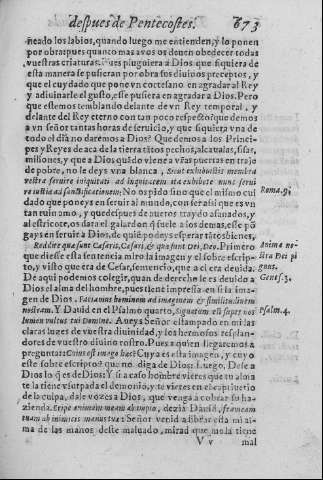 despues de Pentecostes. 673
neado los labios, quando luego me entienden, y lo ponen
por obra: pues quanto mas a vos os deuen obedecer todas
vuestras criaturas. Pues pluguiera a Dios que siquiera de
esta manera se pusieran por obra sus diuinos preceptos, y
que el cuydado que pone vn cortesano en agradar al Rey
y adiuinarle el gusto, esse pusiera en agradar a Dios. Pero
que estemos temblando delante de vn Rey temporal, y
delante del Rey eterno con tan poco respecto? que demos
a vn señor tantas horas de seruicio, y que siquiera vna de
todo el dia no daremos a Dios? Que demos a los Princi-
pes y Reyes de aca de la tierra tātos pechos, alcaualas, sisas,
misiones, y que a Dios, quādo viene a vr̄as puertas en traje
de pobre, no le deys vna blanca, Sicut exhibuistis membra
vestra seruire iniquitati ad iniquitatem ita exhibete nunc serui
re iustitiæ ad sanctificationem: No os pido sino que el mismo cui
dado que poneys en seruir al mundo, con ser assi que es vn
tan ruin amo, y que despues de aueros traydo afanados, y
al estricote, os dara el galardon q̃ suele a los demas, esse pō
gays en seruir a Dios, de quiē podeys esperar tātos bienes,
Reddite quæ sunt Cæsaris, Cæsari, & quæ sunt Dei, Deo. Primero
que diesse esta sentencia miro la imagen y el sobre escrip-
to, y visto que era de Cesar, sentencio, que a el era deuida.
De aqui podemos colegir, quan de derecho le es deuido a
Dios el alma del hombre, pues tiene impressa en si la ima-
gen de Dios. Faciamus hominem ad imaginem & similitudinem
nostram. Y Dauid en el Psalmo quarto, Signatum est super nos
lumen vultus tui Domine. Aueys Señor estampado en mi al
ma lugares de vuestra diuinidad, y los hermosos resplan-
dores de vuestro diuino rostro. Pues a quien llegaremos a
preguntar: Cuius est imago hæc? Cuya es esta imagen, y cuyo
este sobre escripto? que no diga de Dios: Luego, Dese a
Dios lo q̃ es de Dios: Y si a caso hombre vieres que tu alma
te la tiene vsurpada el demonio, y te vieres en el captiuerio
de la culpa, dale vozes a Dios, que venga a cobrar su ha-
zienda. Eripe animam meam
tuam ab inimicis manus tuæ: Señor venid a librar esta mi al-
ma de las manos deste maluado, mirad que me la tiene
V v mal
Roma. 9.
Anima no-
stra Dei pi
gnus.
Genes. 3.
Psalm. 4.